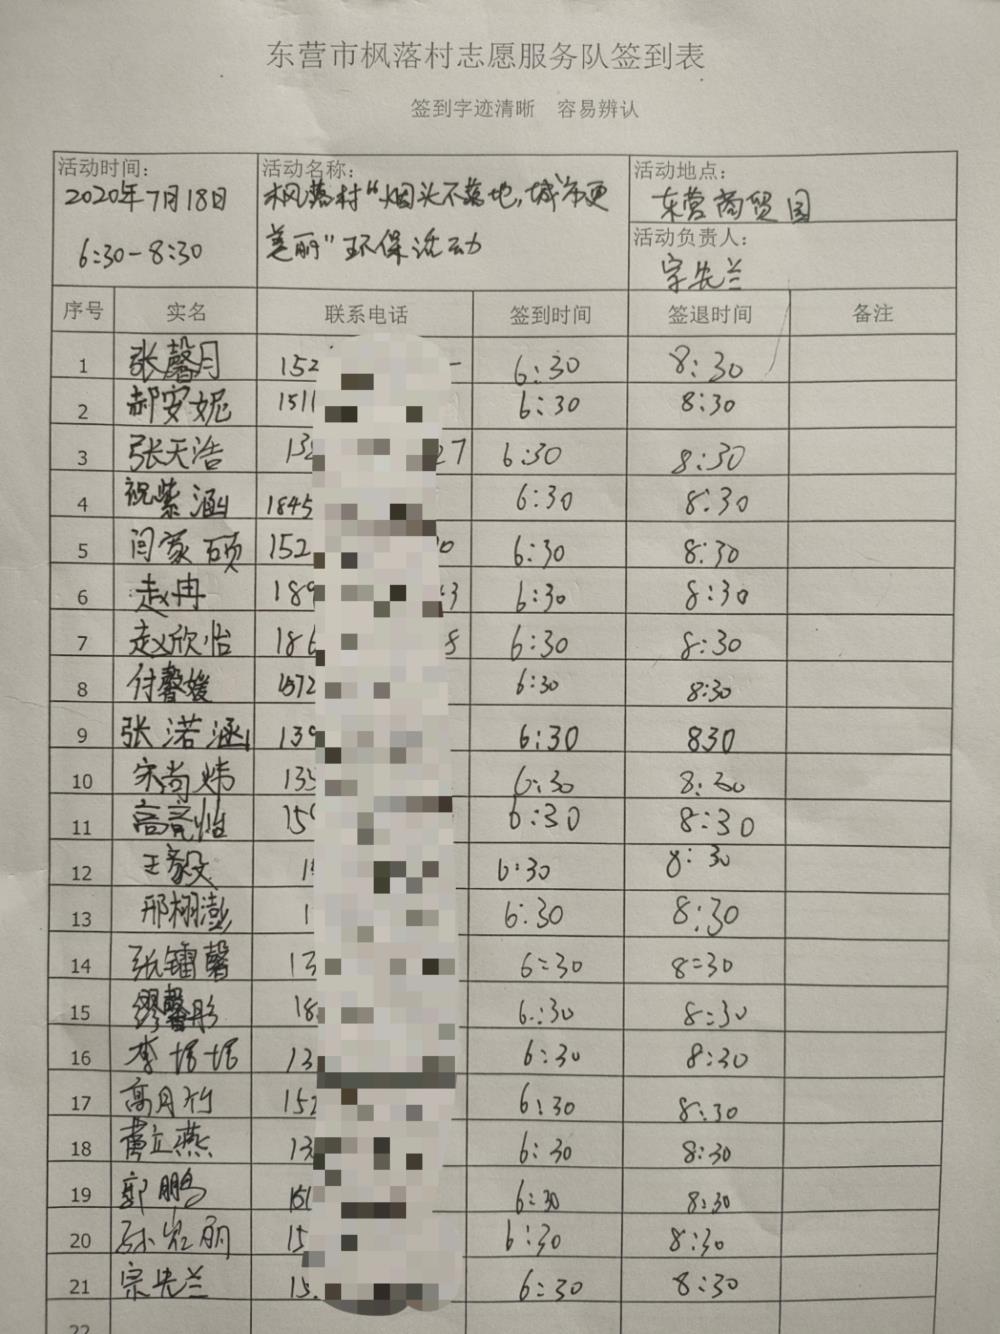 东营市枫落村志愿服务队签到表
签到字迹清晰 容易辨认
活动时间: 活动名称: 活动地点:
2020年7月18日 枫落村“烟头不落地,城市更 东营商贸园
6:30-8:30 美丽”环保活动 活动负责人:
宗先兰
序号 实名 联系电话 签到时间 签退时间 备注
1 张馨月 152 6:30 8:30
2 郝安妮 1511 6:30 8:30
3 张天浩 27 6:30 8:30
4 祝紫涵 1845 6:30 8:30
5 闫家硕 152 6:30 8:30
6 赵冉 189 3 6:30 8:30
7 赵欣怡 186 8 6:30 8:30
8 付馨媛 1572 6:30 8:30
9 张渃涵 139 6:30 830
10 宋尚炜 135 6:30 8:30
11 高竞怡 15 6:30 8:30
12 王毅 1 6:30 8:30
13 邢栩澎 1 6:30 8:30
14 张镭馨 13 6:30 8:30
15 缪馨彤 18 6:30 8:30
16 李 13 6:30 8:30
17 高月竹 152 6:30 8:30
18 曹立燕 13 6:30 8:30
19 郭鹏 151 6:30 8:30
20 15 6:30 8:30
21 宗先兰 15 6:30 8:30
22